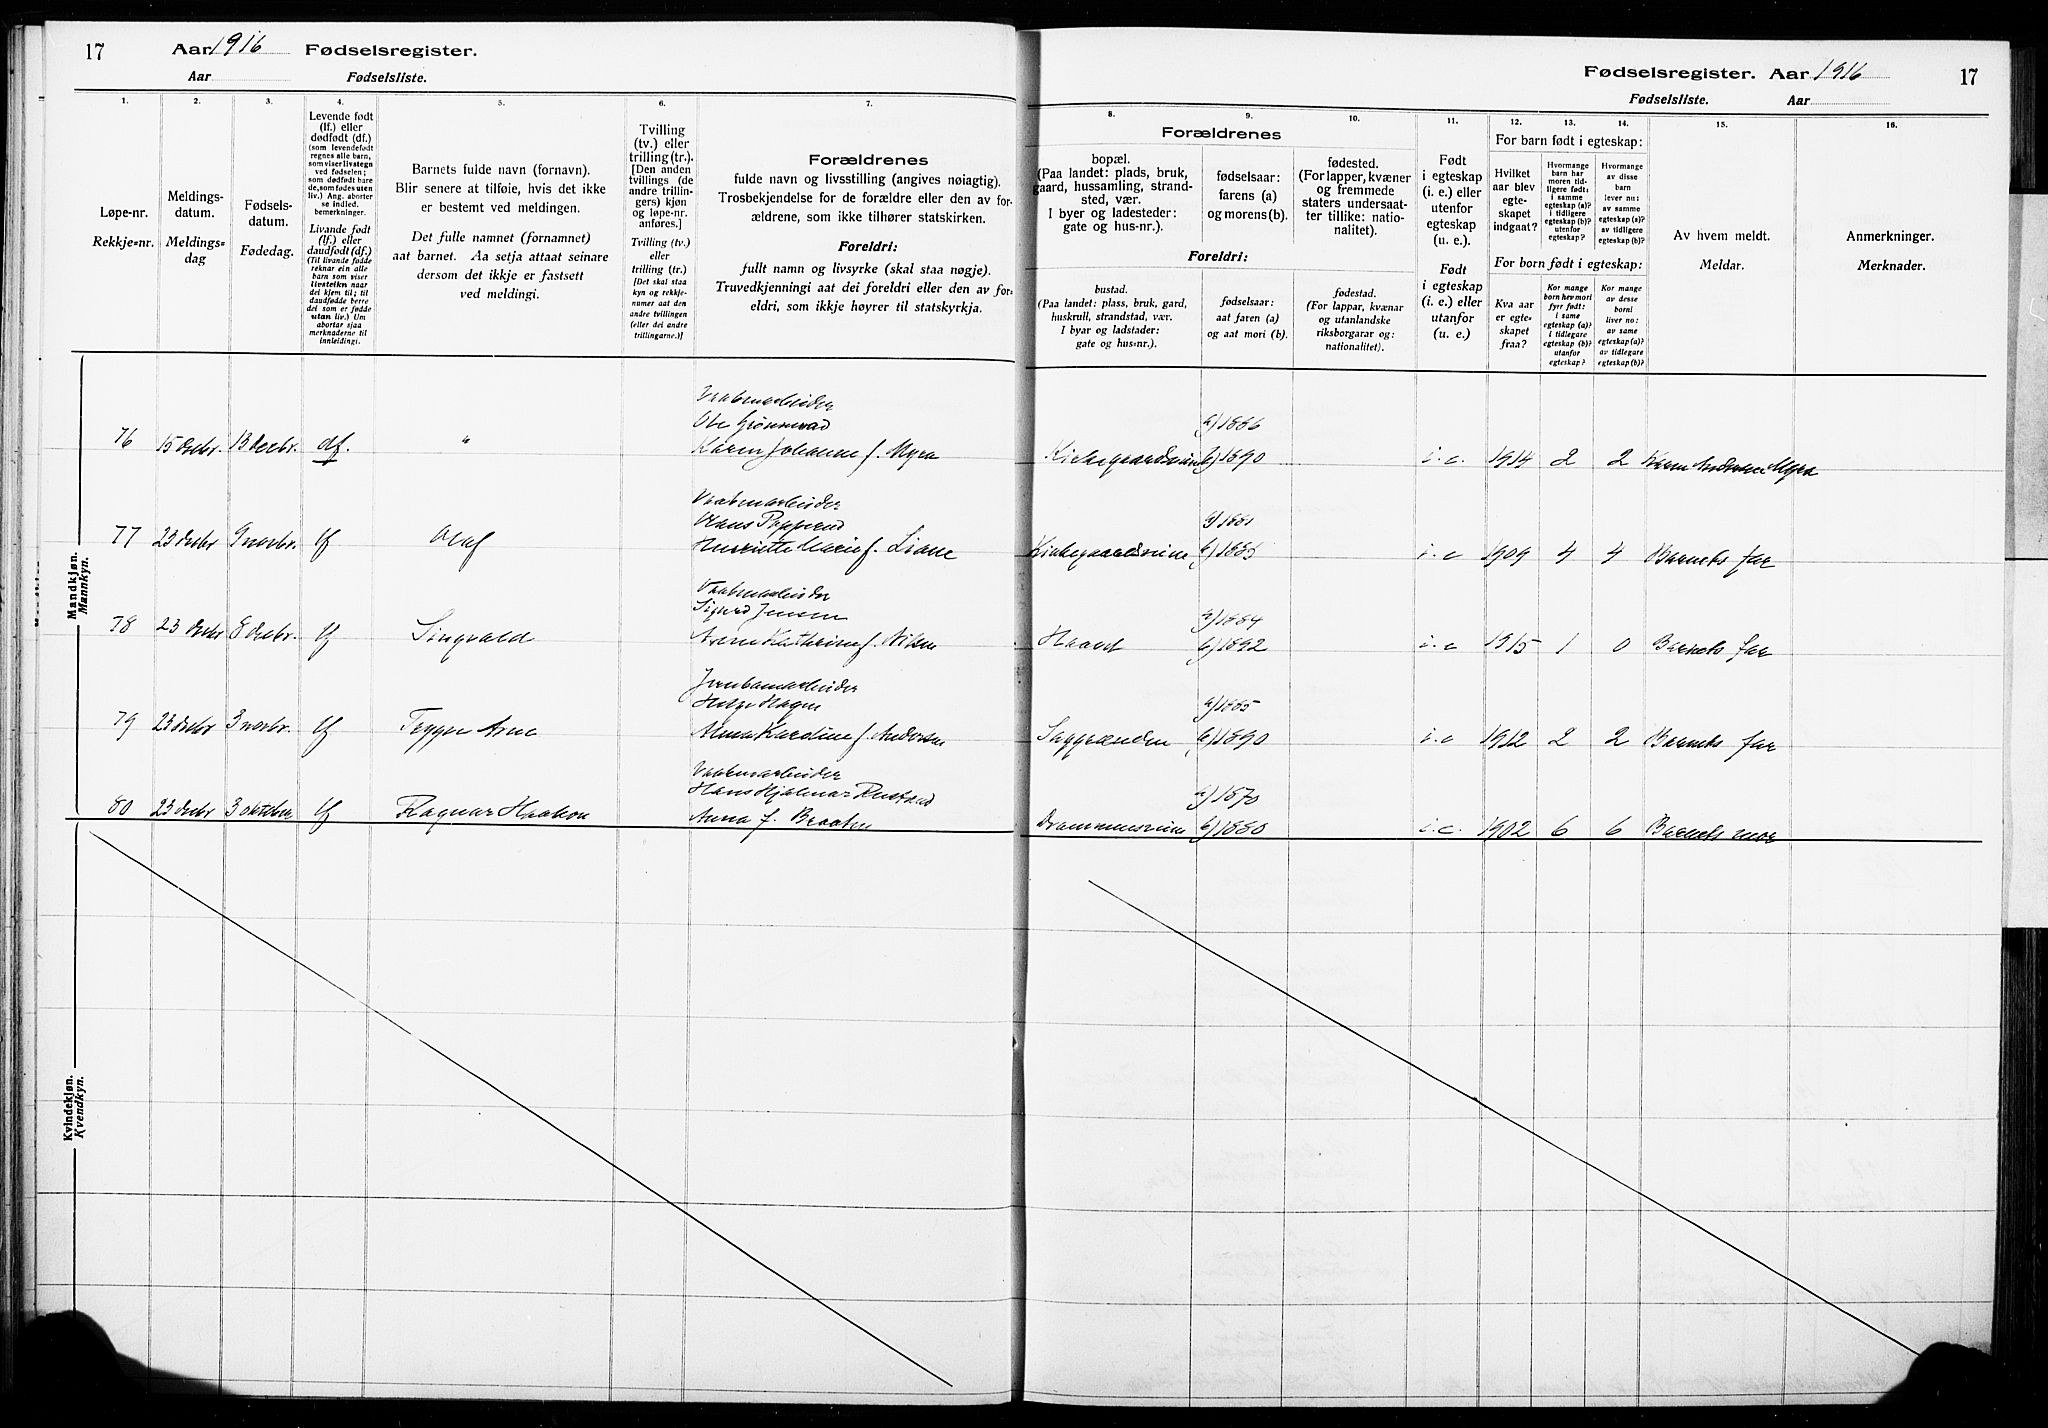 17 Aar 1916 Fødselsregister.
Aar Fødselsliste.
1. 2. 3. 4. 5. 6. 7.
Løpe-nr.
Rekkje=nr.
Meldings-
datum.
Meldings=
dag
Fødsels-
datum.
Fødedag.
Levende født
(lf.) eller
dødfødt (df.)
(som levendefødt
regnes alle barn,
som viser livstegn
ved fødselen;
som dødfødt bare
de, som fødes uten
liv.) Ang. aborter
se indled.
bemerkninger.
Livande født
(lf.) eller
daudfødt (df.)
(Til livande fødde
reknar ein alle
barn som viser
livsteikn naar
dei kjem til; til
daudfødde berre
dei som er fødde
utan liv.) Um
abortar sjaa
merknaderne til
innleidingi.
Barnets fulde navn (fornavn).
Blir senere at tilføie, hvis det ikke
er bestemt ved meldingen.
Det fulle namnet (fornamnet)
aat barnet. Aa setja attaat seinare
dersom det ikkje er fastsett
ved meldingi.
Tvilling
(tv.) eller
trilling (tr.).
[Den anden
tvillings (de
andre trillin-
gers) kjøn
og løpe-nr.
anføres.]
Tvilling (tv.)
eller
trilling (tr.)
[Det skal staa
kyn og rekkje-
numer aat den
andre tvillingen
(eller dei andre
trillingarne.)]
Forældrenes
fulde navn og livsstilling (angives nøiagtig).
Trosbekjendelse for de forældre eller den av for-
ældrene, som ikke tilhører statskirken.
Foreldri:
fullt namn og livsyrke (skal staa nøgje).
Truvedkjenningi aat dei foreldri eller den av for-
eldri, som ikkje høyrer til statskyrkja.
Fødselsregister. Aar 1916 17
Fødselsliste. Aar
8. 9. 10. 11. 12. 13. 14. 15. 16.
Forældrenes
bopæl.
(Paa landet: plads, bruk,
gaard, hussamling, strand-
sted, vær.
I byer og ladesteder:
gate og hus-nr.).
fødselsaar:
farens (a)
og morens (b).
fødested.
(For lapper, kvæner
og fremmede
staters undersaat-
ter tillike: natio-
nalitet).
Foreldri:
bustad.
(Paa landet: plass, bruk, gard,
huskrull, strandstad, vær.
I byar og ladstader:
gate og hus=nr.).
fødselsaar:
aat faren (a)
og aat mori (b).
fødestad.
(For lappar, kvænar
og utanlandske
riksborgarar og:
nationalitet).
Født
i egteskap
(i. e.) eller
utenfor
egteskap
(u. e.).
Født
i egteskap
(i. e.) eller
utanfor
(u. e.).
For barn født i egteskap:
Hvilket
aar blev
egte-
skapet
indgaat?
Hvormange
barn har
moren tid-
ligere født:
i samme
egteskap (a)?
i tidligere
egteskap (b)?
utenfor
egteskap?
Hvormange
av disse
barn
lever nu:
av samme
egteskap (a)?
av tidligere
egteskap (b)?
For born født i egteskap:
Kva aar
er egte=
skapet
fraa?
Kor mange
born hev mori
fyrr født:
i same
egteskap (a)?
i tidlegare
egteskap (b)?
utanfor
egteskap?
Kor mange
av desse
borni
liver no:
av same
egteskap (a)?
av tidlegare
egteskap (b)?
Av hvem meldt.
Meldar.
Anmerkninger.
Merknader.
Mandkjøn.
Mannkyn.
Vaabenarbeider
Ole
76 15 Decbr. 13 Decbr. df. " Karen Johanne f. Myra
a) 1886
Kirkegaardsveien b) 1890 i. e. 1914 2 2 Karen Myra
Vaabenarbeider
Hans
77 23 Decbr 9 novbr. lf Olaf Henriette Marie f. Liane
a) 1881
Kirkegaardsveien b) 1885 i. e 1909 4 4 Barnets far
Vaabenarbeider
Sigurd Jensen
78 23 Decbr 8 Decbr. lf Singvald Kathrine f. Nilsen
a) 1884
b) 1892 i. e 1915 1 0 Barnets far
Jernbanearbeider
Helge Hagen
79 23 Decbr 3 novbr. lf Trygve Arne Anna Karoline f. Andersen
a) 1885
Saggrenden b) 1890 i. e 1912 2 2 Barnets far
Vaabenarbeider
Hans Hjalmar Rustad
80 23 Decbr 3 oktober lf Ragnar Haakon Anna f. Braaten
a) 1870
Drammensveien b) 1880 i. e. 1902 6 6 Barnets mor
Kvindekjøn.
Kvendkyn.